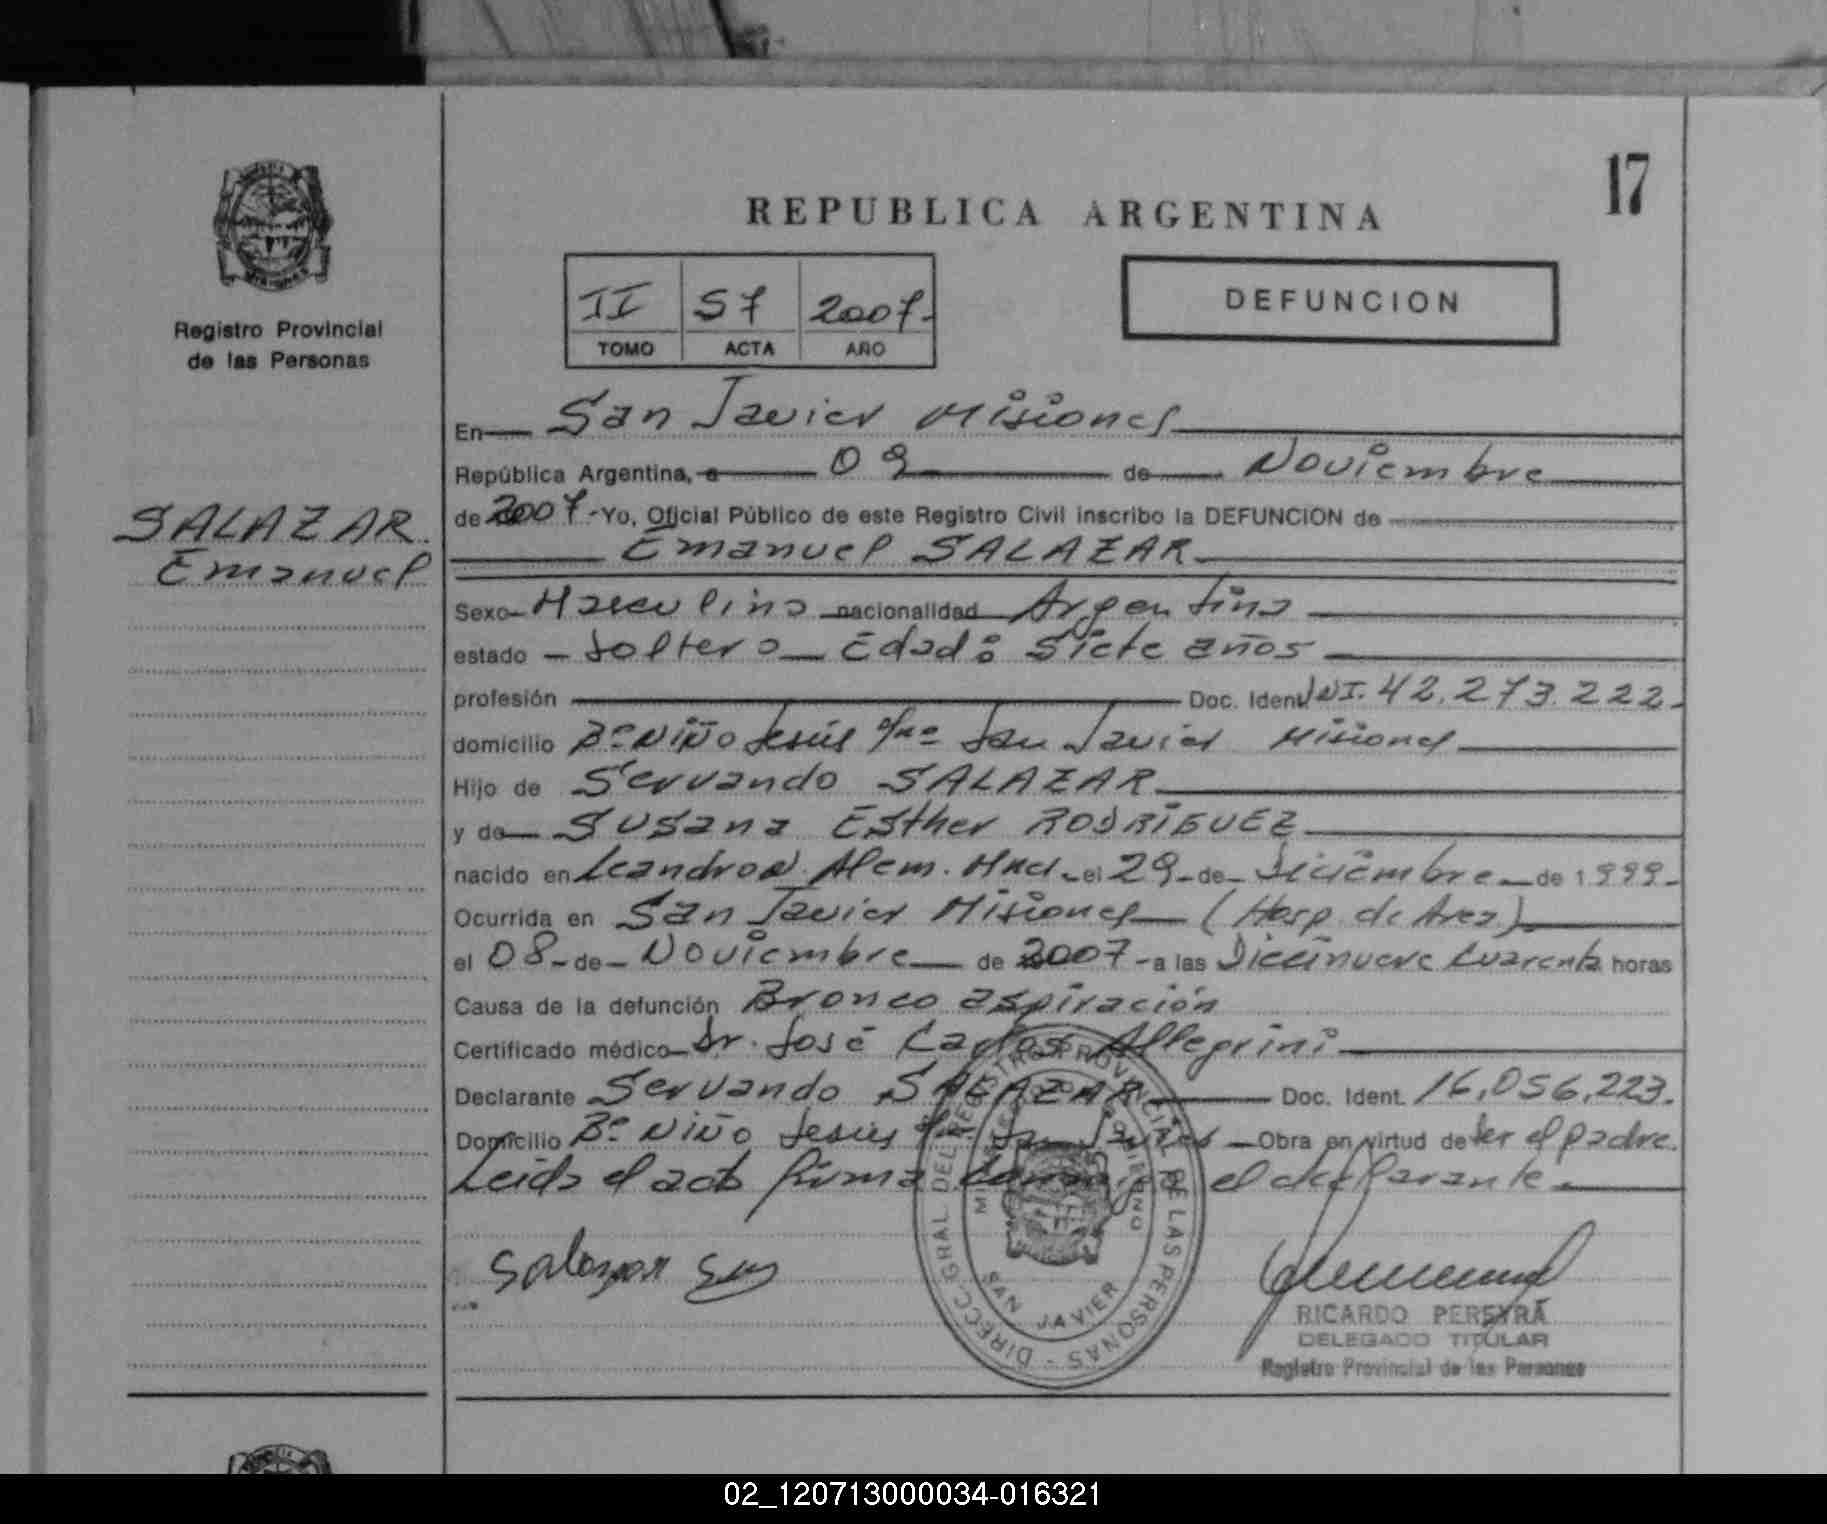 17
REPUBLICA ARGENTINA
Registro Provincial
de las Personas
II 57 2007-
TOMO ACTA AÑO
DEFUNCION
SALAZAR
Emanuel
En San Javier Misiones
República Argentina, a 09 de Noviembre
de 2007- Yo, Oficial Público de este Registro Civil inscribo la DEFUNCION de
Emanuel SALAZAR
Sexo Masculino nacionalidad Argentina
estado Soltero Edad: Siete años
profesión Doc. Ident. DNI. 42.273.222-
domicilio Bº Niño Jesús San Javier Misiones
Hijo de Servando SALAZAR
y de Susana Esther RODRIGUEZ
nacido en Leandro N. Alem. Mnes. el 29 de Diciembre de 1999-
Ocurrida en San Javier Misiones (Hosp. de Area)
el 08 de Noviembre de 2007 - a las Diecinueve Cuarenta horas
Causa de la defunción Bronco aspiración
Certificado médico Dr. José Carlos Allegrini
Declarante Servando SALAZAR Doc. Ident. 16.056.223.
Domicilio Bº Niño Jesús San Javier Obra en virtud de ser el padre.
Leida el acta firma conmigo el declarante.
Salazar
DIRECC. GRAL. DEL REGISTRO PROVINCIAL DE LAS PERSONAS
MINISTERIO DE GOBIERNO
SAN JAVIER
RICARDO PEREYRA
DELEGADO TITULAR
Registro Provincial de las Personas
02_120713000034-016321